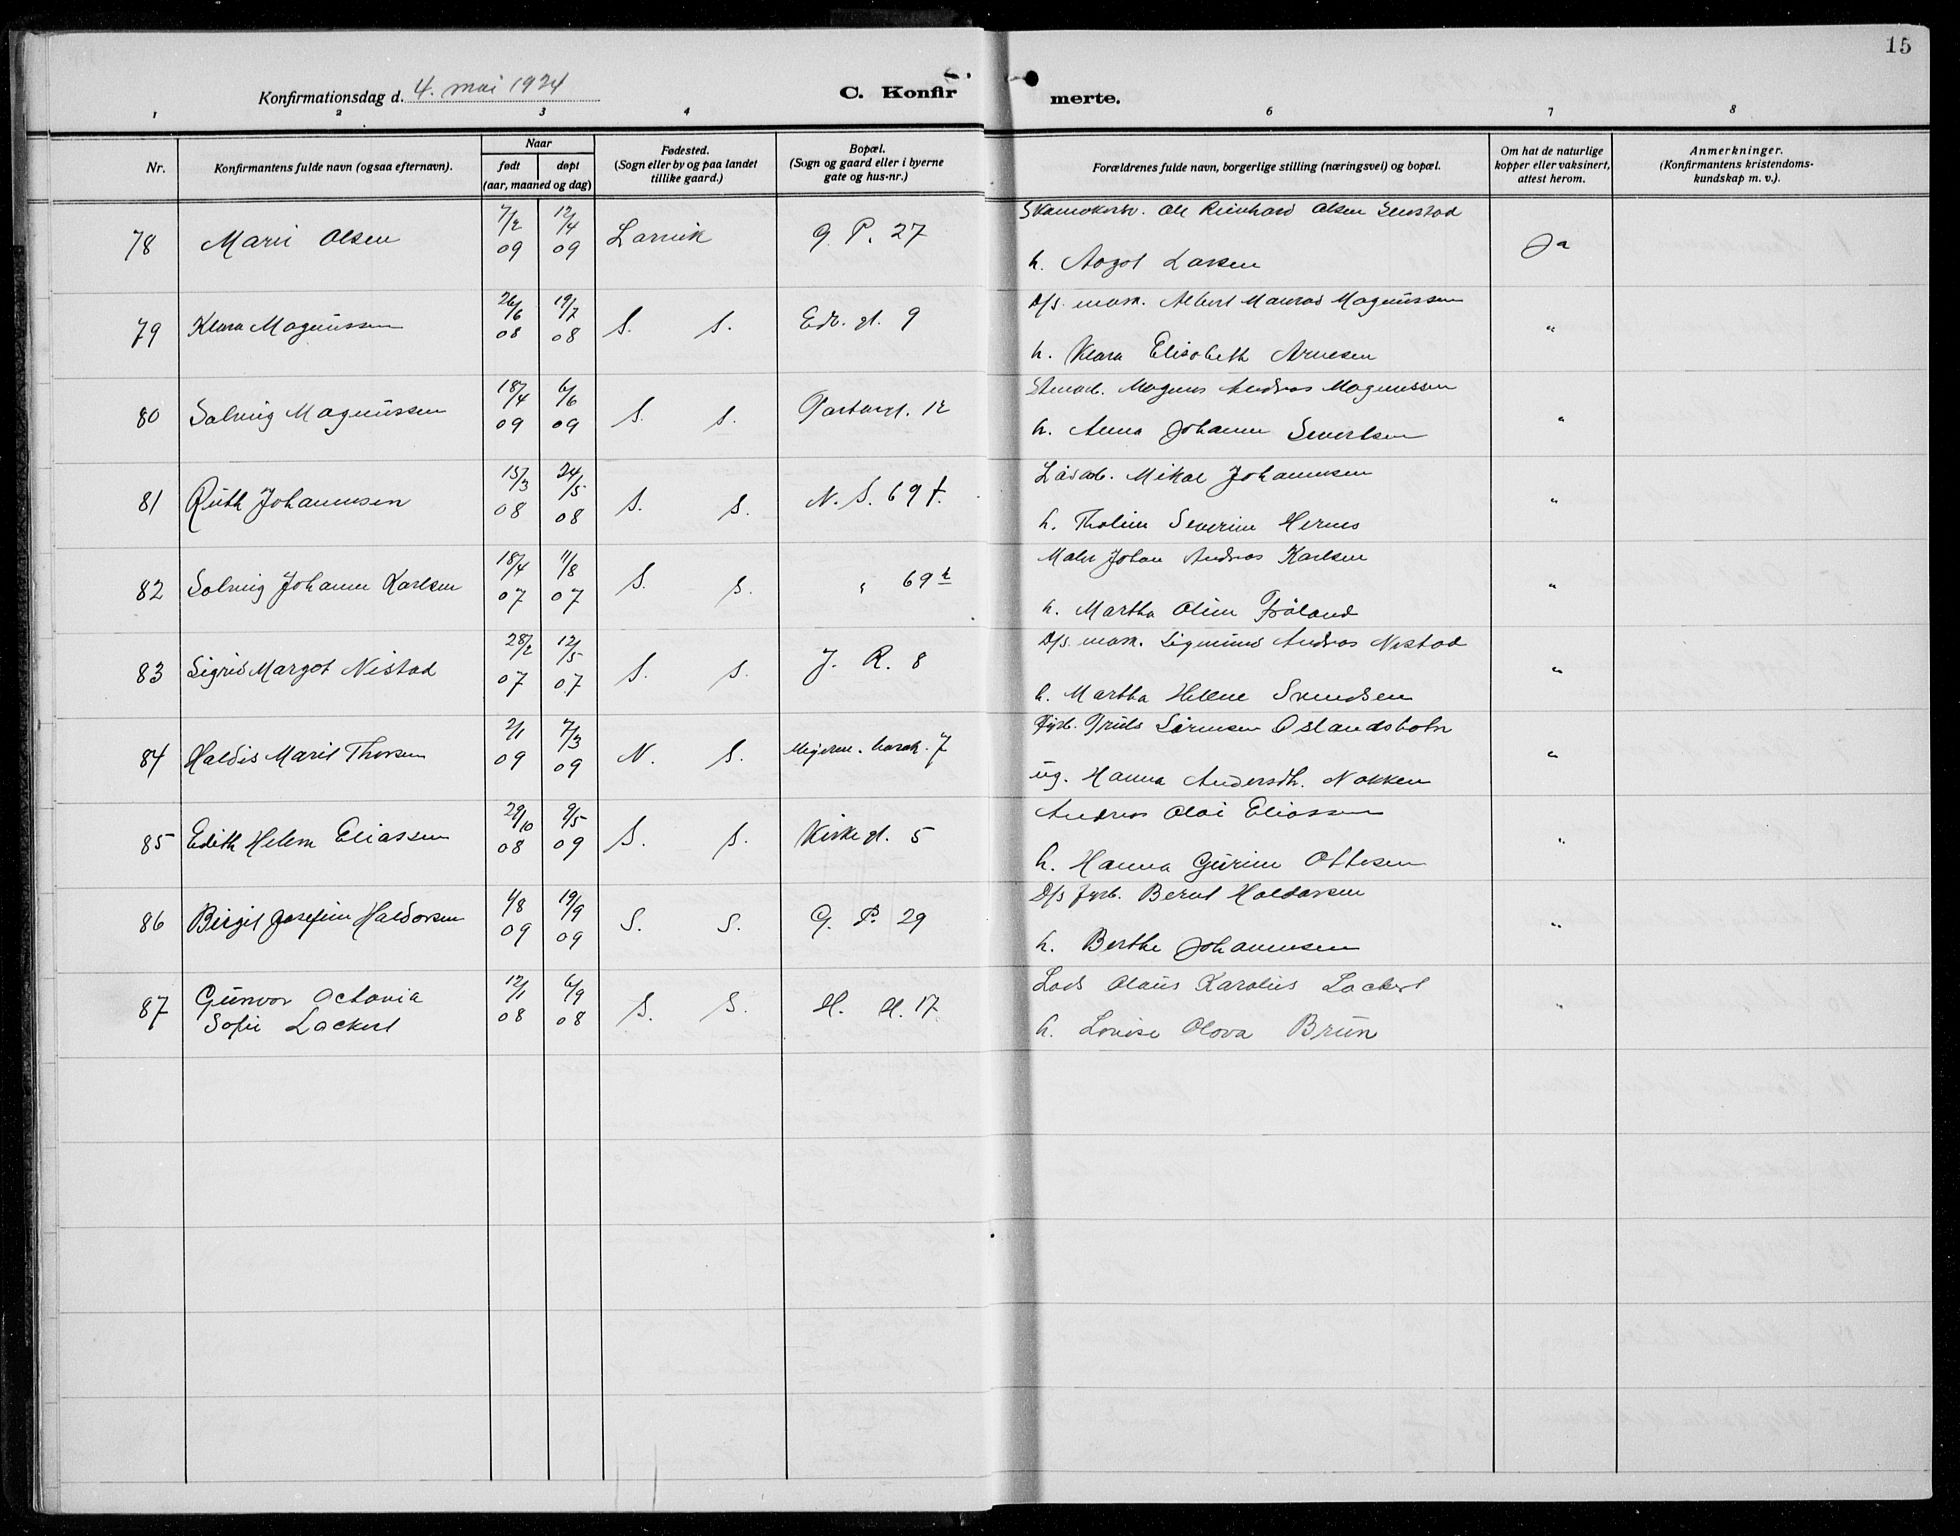 15
Konfirmationsdag d. 4. mai 1924 C. Konfirmerte.
1 2 3 4 6 7 8
Nr. Konfirmantens fulde navn (ogsaa efternavn). Naar født døpt (aar, maaned og dag) Fødested. (Sogn eller by og paa landet tillike gaard.) Bopæl. (Sogn og gaard eller i byerne gate og hus-nr.) Forældrenes fulde navn, borgerlige stilling (næringsvei) og bopæl. Om hat de naturlige kopper eller vaksinert, attest herom. Anmerkninger. (Konfirmantens kristendoms-kundskap m. v.).
78 Marie Olsen 7/2 09 12/4 09 Larvik G. P. 27 Ole Reinhard Olsen Ja
h. Aagot Larsen
79 Klara Magnussen 26/6 08 19/7 08 S. S. 9 D/s. mask. Albert Magnussen "
h. Klara Elisabeth Arnesen
80 Solveig Magnussen 18/4 09 6/6 09 S. S. 12 Magnus Andreas Magnussen "
h. Anna Johanne Severtsen
81 Ruth Johannesen 15/3 08 24/5 08 S. S. N. S. 69 f. Mikal Johannesen "
h. Severine Hernes
82 Solveig Johanne Karlsen 18/4 07 11/8 07 S. S. " 69 Maler Johan Andreas Karlsen "
h. Martha Oline Frøland
83 Sigrid Margot Nistad 28/2 07 12/5 07 S. S. J. R. 8 D/s. mask. Sigmund Andreas Nistad "
h. Martha Helene Svendsen
84 Haldis Marit Thorsen 2/1 09 7/3 09 N. S. barak. 7 Fyrb. Truls Sørensen "
ug. Hanna Andersdt. Nokken
85 Edith Helene Eliassen 29/10 08 9/5 09 S. S. Kirkegt. 5 Andreas Olai Eliassen "
h. Hanna Gurine Ottesen
86 Birgit Josefine Haldorsen 1/8 09 19/9 09 S. S. G. P. 29 D/s fyrb. Bernt Haldorsen "
h. Berthe Johannesen
87 Gunvor Octavia 12/1 08 6/9 08 S. S. H. H. 17 Lods Olaus Karolius Lockert "
Sofie Lockert h. Lovise Olova Brun